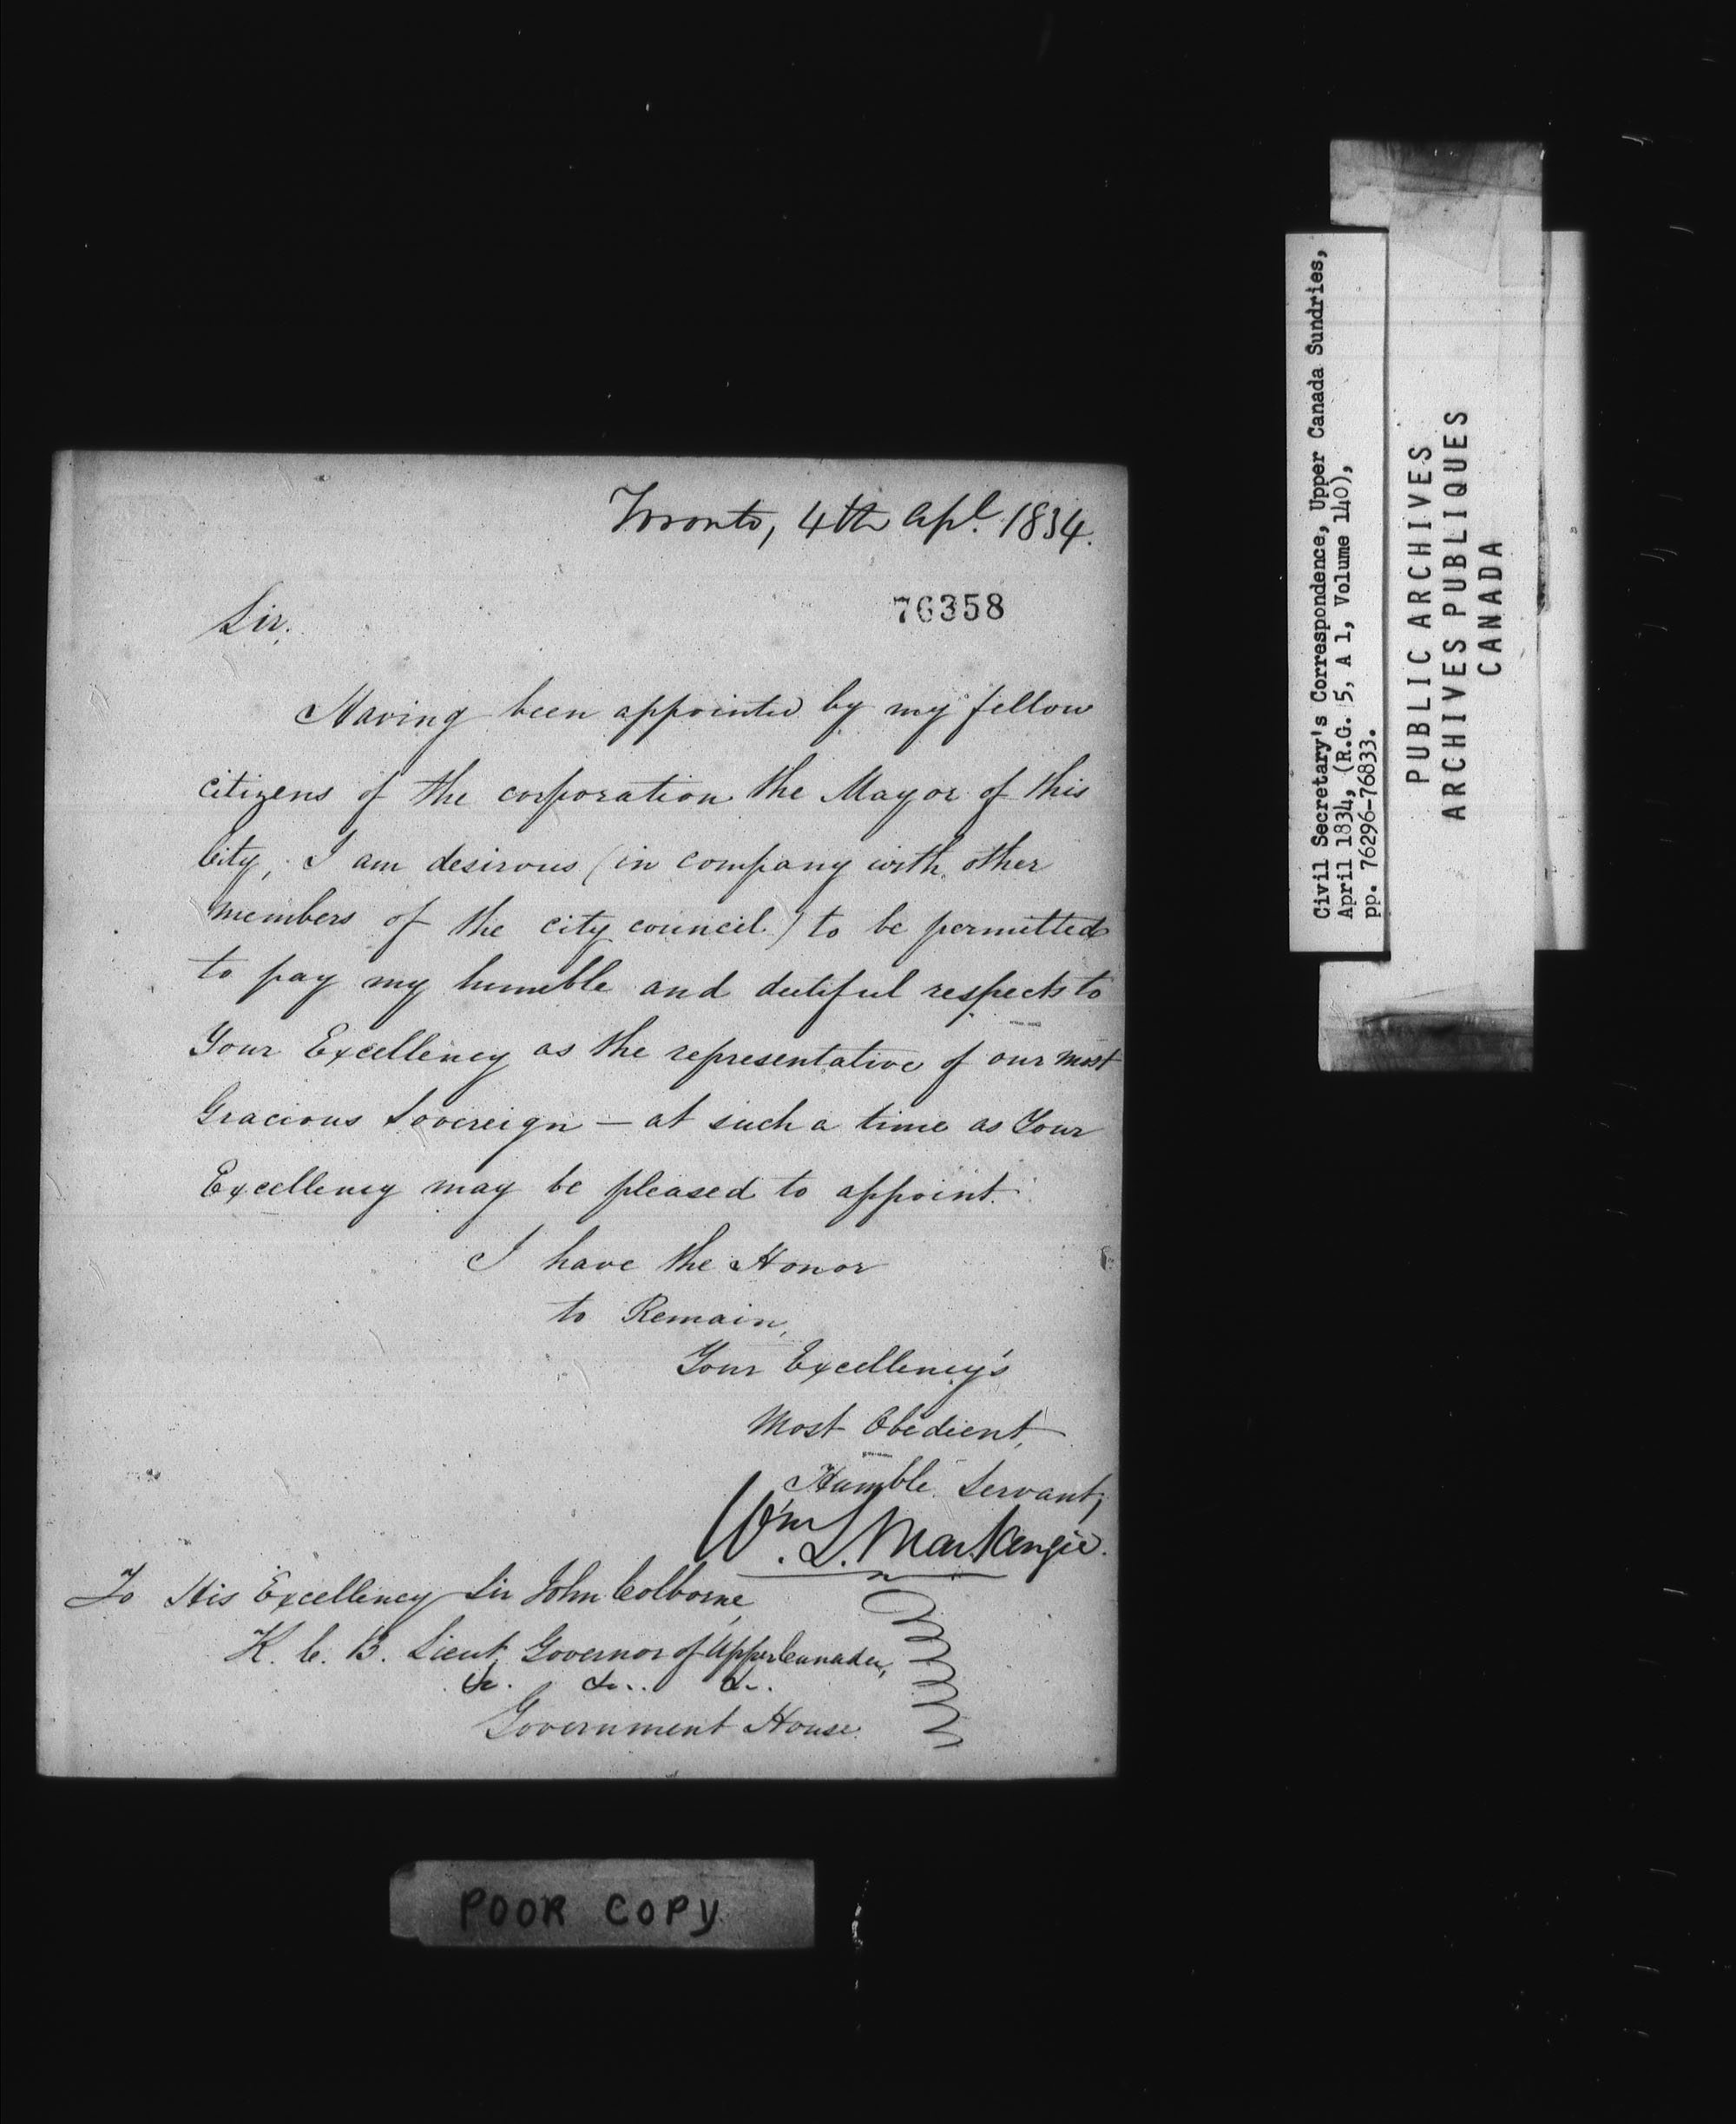 Toronto, 4th Apl. 1834.
76358
Sir,
Having been appointed by my fellow
citizens of the corporation the Mayor of this
City, I am desirous (in company with other
members of the city council) to be permitted
to pay my humble and dutiful respects to
Your Excellency as the representative of our most
Gracious Sovereign — at such a time as Your
Excellency may be pleased to appoint.
I have the Honor
to Remain,
Your Excellency's
Most Obedient,
Humble Servant,
Wm. L. Mackenzie.
To His Excellency Sir John Colborne,
K. C. B. Lieut. Governor of Upper Canada,
&c. &c. &c.
Government House.
POOR COPY
Civil Secretary's Correspondence, Upper Canada Sundries,
April 1834, (R.G. 5, A 1, Volume 140),
pp. 76296-76833.
PUBLIC ARCHIVES
ARCHIVES PUBLIQUES
CANADA